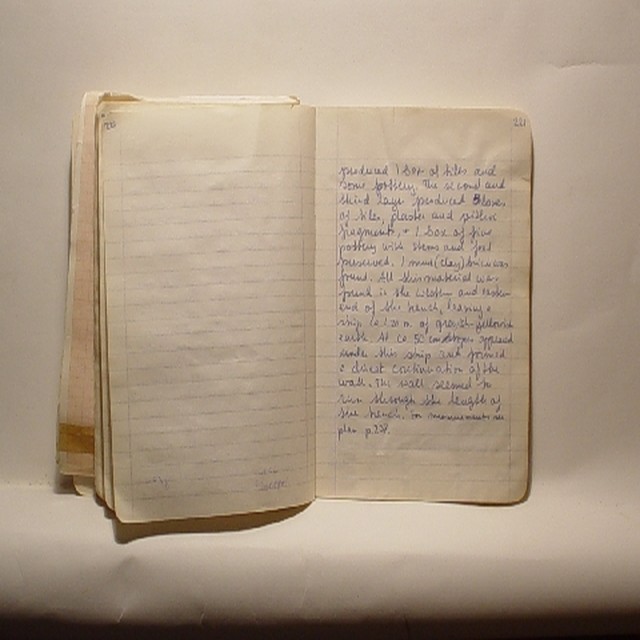 221
produced 1 box of tiles and
some pottery. The second and
third days produced 3 boxes
of tiles, plaster and pithos
fragments, + 1 box of fine
pottery with stems and feet
preserved. 1 mud (clay) brick was
found. All this material was
found in the western and eastern
end of the trench, leaving a
strip ca 1.20 m. of greyish yellowish
earth. At ca 50 cm appeared
under this strip and formed
a direct continuation of the
wall. The wall seemed to
run through the length of
the trench. For measurements see
plan p.